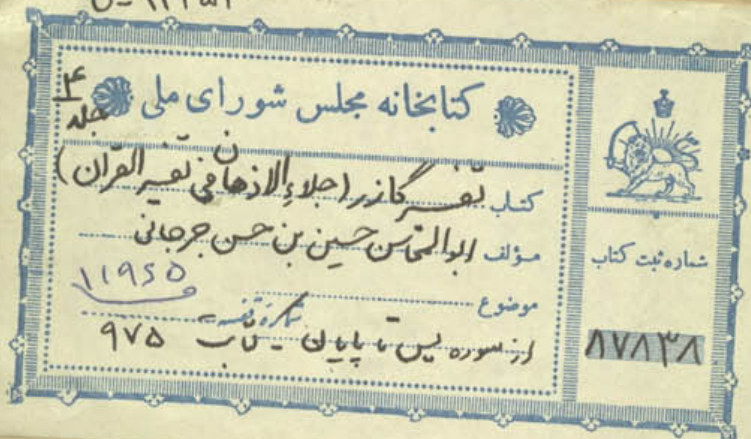 کتابخانه مجلس شورای ملی
جلد ۴
کتاب تفسیر گازر (جلاء الاذهان فی تفسیر القرآن)
مؤلف ابوالمحاسن حسین بن حسن جرجانی
موضوع
۱۱۹۶۵
از سوره یس تا پایان کتاب ۹۷۵
شماره ثبت کتاب
۸۷۸۳۸